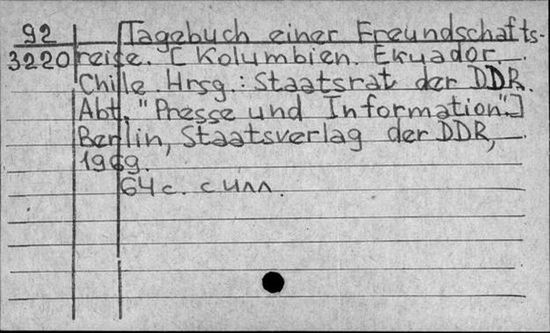 92 Tagebuch einer Freundschafts-
3220 reise. [Kolumbien. Ekuador.
Chile. Hrsg.: Staatsrat der DDR.
Abt. "Presse und Information".]
Berlin, Staatsverlag der DDR,
1969.
64 с. с илл.